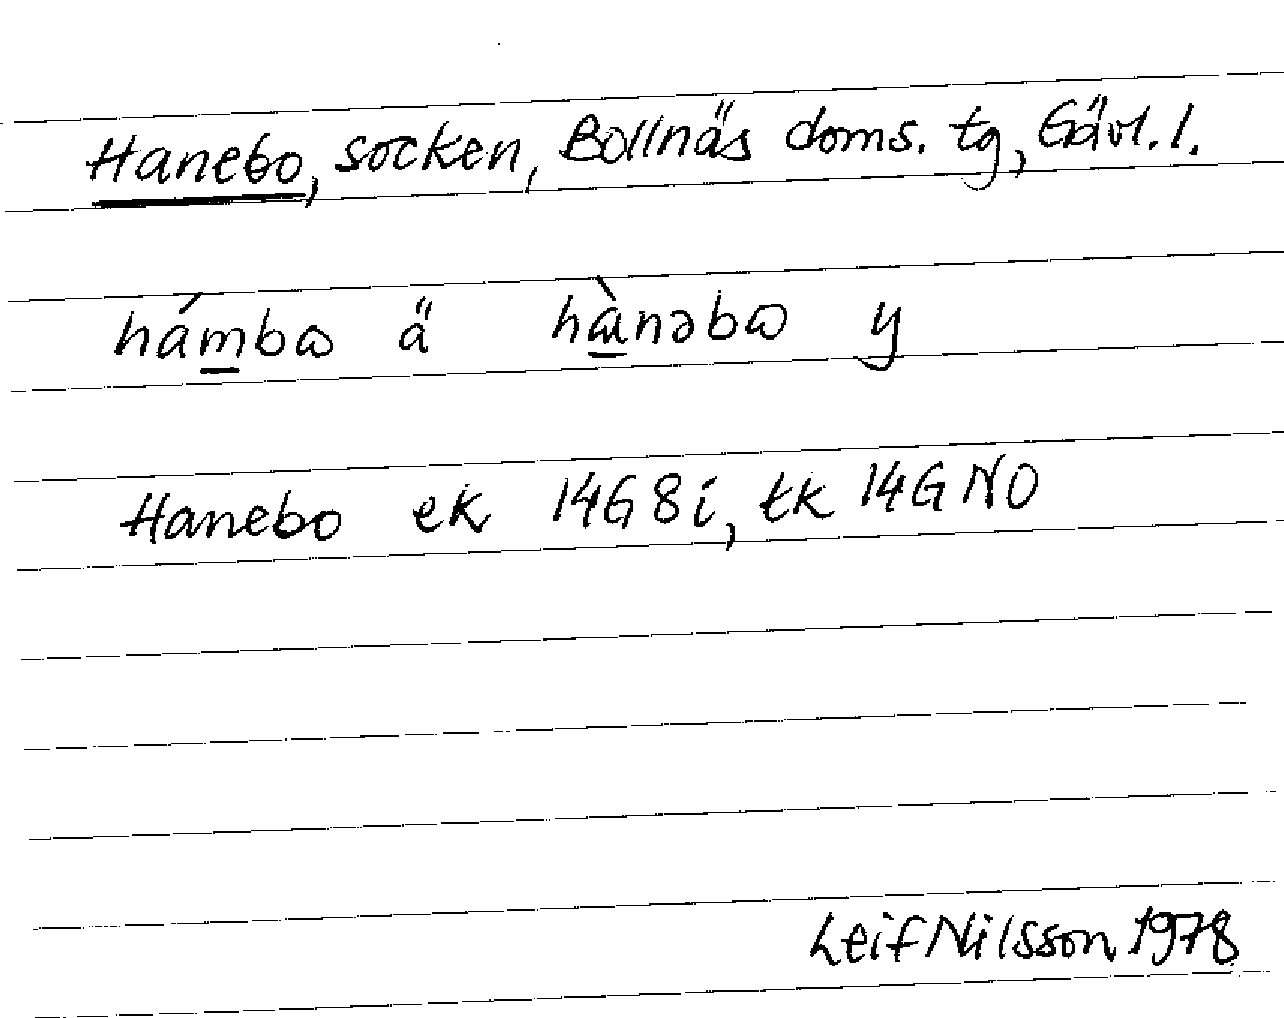 Hanebo, socken, Bollnäs doms. tg, Gävl. l.
hámbɷ ä hànəbɷ y
Hanebo ek 14G 8i, tk 14G NO
Leif Nilsson 1978